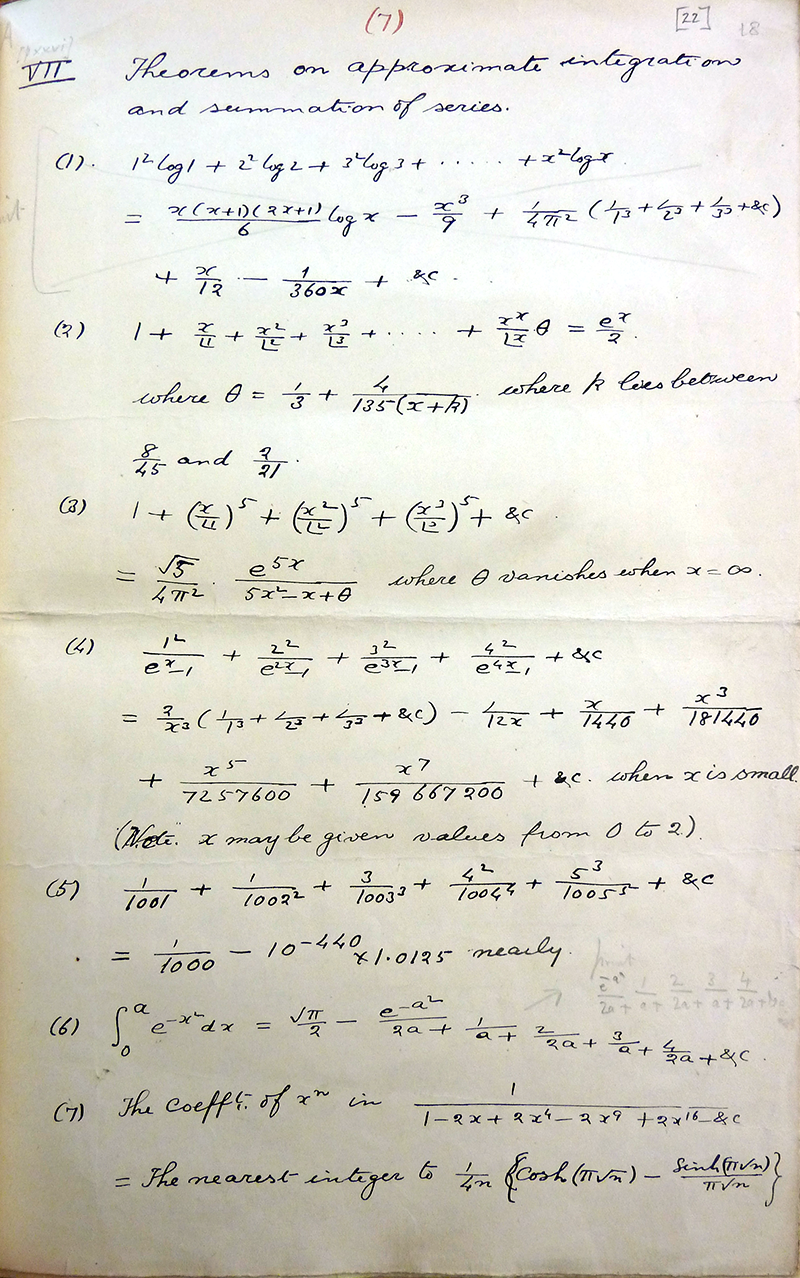 (7) [22] 18
VII Theorems on approximate integration
and summation of series.
(1). 1² log 1 + 2² log 2 + 3² log 3 + ..... + x² log x
= x(x+1)(2x+1)/6 log x − x³/9 + 1/4π² (1/1³ + 1/2³ + 1/3³ + &c)
+ x/12 − 1/360x + &c.
(2) 1 + x/∟1 + x²/∟2 + x³/∟3 + ..... + x^x/∟x θ = e^x/2.
where θ = 1/3 + 4/135(x+k) where k lies between
8/45 and 2/21.
(3) 1 + (x/∟1)⁵ + (x²/∟2)⁵ + (x³/∟3)⁵ + &c
= √5/4π² · e^5x/(5x²−x+θ) where θ vanishes when x = ∞.
(4) 1²/(e^x−1) + 2²/(e^2x−1) + 3²/(e^3x−1) + 4²/(e^4x−1) + &c
= 2/x³ (1/1³ + 1/2³ + 1/3³ + &c) − 1/12x + x/1440 + x³/181440
+ x⁵/7257600 + x⁷/159667200 + &c. when x is small.
(Note. x may be given values from 0 to 2).
(5) 1/1001 + 1/1002² + 3/1003³ + 4²/1004⁴ + 5³/1005⁵ + &c
= 1/1000 − 10^−440 × 1.0125 nearly.
print
(6) ∫₀^a e^−x² dx = √π/2 − e^−a²/2a + 1/a + 2/2a + 3/a + 4/2a + &c.
(7) The coefft. of x^n in 1/(1−2x+2x⁴−2x⁹+2x^16−&c)
= The nearest integer to 1/4n {Cosh(π√n) − Sinh(π√n)/π√n}